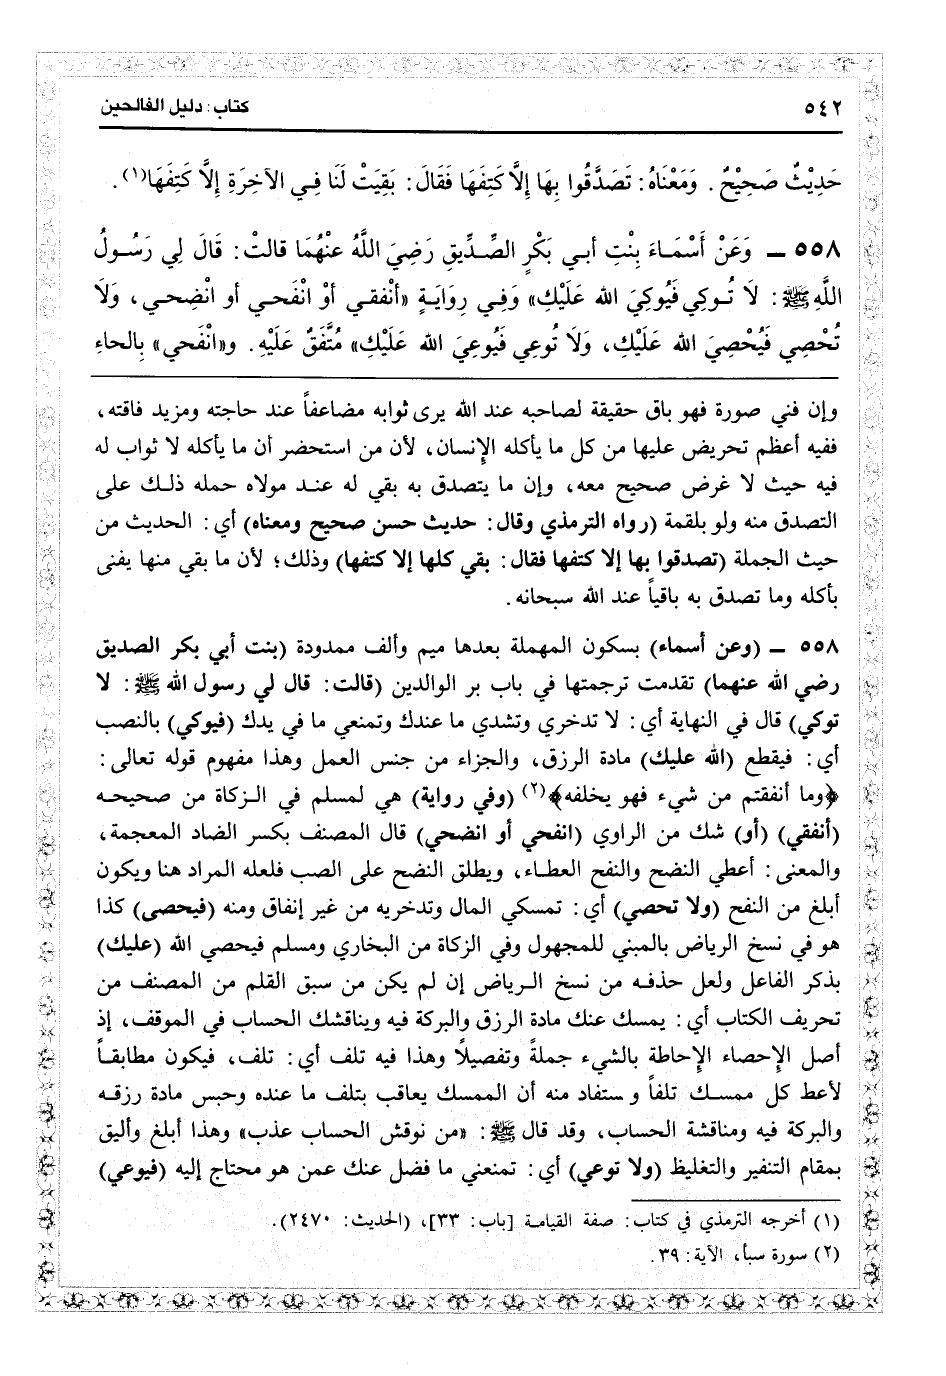 ٥٤٢ كتاب: دليل الفالحين
حَدِيْثٌ صَحِيْحٌ. وَمَعْنَاهُ: تَصَدَّقُوا بِهَا إِلاَّ كَتِفَهَا فَقَالَ: بَقِيَتْ لَنَا فِي الآخِرَةِ إِلاَّ كَتِفَهَا(١).
٥٥٨ ــ وَعَنْ أَسْمَاءَ بِنْتِ أبي بَكْرٍ الصِّدِّيقِ رَضِيَ اللَّهُ عَنْهُمَا قالتْ: قَالَ لِي رَسُولُ
اللَّهِ ﷺ: لَا تُوكِي فَيُوكِيَ الله عَلَيْكِ» وَفِي رِوَايَةٍ «أَنْفقي أَوْ انْفَحي أو انْضِحي، وَلَا
تُحْصِي فَيُحْصِيَ الله عَلَيْكِ، وَلَا تُوعِي فَيُوعِيَ الله عَلَيْكِ» مُتَّفَقٌ عَلَيْهِ. و«انْفَحي» بِالحاءِ
وإن فني صورة فهو باق حقيقة لصاحبه عند الله يرى ثوابه مضاعفاً عند حاجته ومزيد فاقته،
ففيه أعظم تحريض عليها من كل ما يأكله الإنسان، لأن من استحضر أن ما يأكله لا ثواب له
فيه حيث لا غرض صحيح معه، وإن ما يتصدق به بقي له عند مولاه حمله ذلك على
التصدق منه ولو بلقمة (رواه الترمذي وقال: حديث حسن صحيح ومعناه) أي: الحديث من
حيث الجملة (تصدقوا بها إلا كتفها فقال: بقي كلها إلا كتفها) وذلك؛ لأن ما بقي منها يفنى
بأكله وما تصدق به باقياً عند الله سبحانه.
٥٥٨ ــ (وعن أسماء) بسكون المهملة بعدها ميم وألف ممدودة (بنت أبي بكر الصديق
رضي الله عنهما) تقدمت ترجمتها في باب بر الوالدين (قالت: قال لي رسول الله ﷺ: لا
توكي) قال في النهاية أي: لا تدخري وتشدي ما عندك وتمنعي ما في يدك (فيوكي) بالنصب
أي: فيقطع (الله عليك) مادة الرزق، والجزاء من جنس العمل وهذا مفهوم قوله تعالى:
﴿وما أنفقتم من شيء فهو يخلفه﴾(٢) (وفي رواية) هي لمسلم في الزكاة من صحيحه
(أنفقي) (أو) شك من الراوي (انفحي أو انضحي) قال المصنف بكسر الضاد المعجمة،
والمعنى: أعطي النضح والنفح العطاء، ويطلق النضح على الصب فلعله المراد هنا ويكون
أبلغ من النفح (ولا تحصي) أي: تمسكي المال وتدخريه من غير إنفاق ومنه (فيحصى) كذا
هو في نسخ الرياض بالمبني للمجهول وفي الزكاة من البخاري ومسلم فيحصي الله (عليك)
بذكر الفاعل ولعل حذفه من نسخ الرياض إن لم يكن من سبق القلم من المصنف من
تحريف الكتاب أي: يمسك عنك مادة الرزق والبركة فيه ويناقشك الحساب في الموقف، إذ
أصل الإحصاء الإحاطة بالشيء جملةً وتفصيلاً وهذا فيه تلف أي: تلف، فيكون مطابقاً
لأعط كل ممسك تلفاً و ستفاد منه أن الممسك يعاقب بتلف ما عنده وحبس مادة رزقه
والبركة فيه ومناقشة الحساب، وقد قال ﷺ: «من نوقش الحساب عذب» وهذا أبلغ وأليق
بمقام التنفير والتغليظ (ولا توعي) أي: تمنعني ما فضل عنك عمن هو محتاج إليه (فيوعي)
(١) أخرجه الترمذي في كتاب: صفة القيامة [باب: ٣٣]، (الحديث: ٢٤٧٠).
(٢) سورة سبأ، الآية: ٣٩.